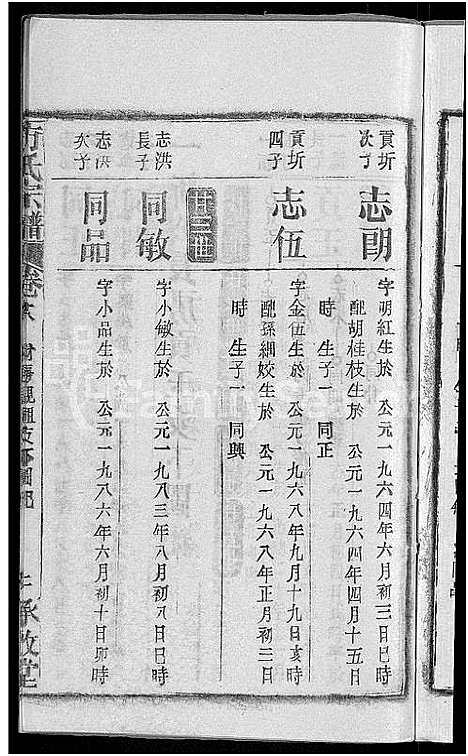 貢圻次子
志朗
字明紅生於 公元一九六四年六月初三日巳時
配胡桂枝生於 公元一九六四年四月十五日
時 生子一 同正
貢圻四子
志伍
字金伍生於 公元一九六八年九月十九日亥時
配孫細姣生於 公元一九六八年正月初三日
時 生子一 同興
志洪長子
同敏
字小敏生於 公元一九八三年八月初八日巳時
志洪次子
同品
字小品生於 公元一九八六年六月初十日卯時
方氏宗譜
承啟堂